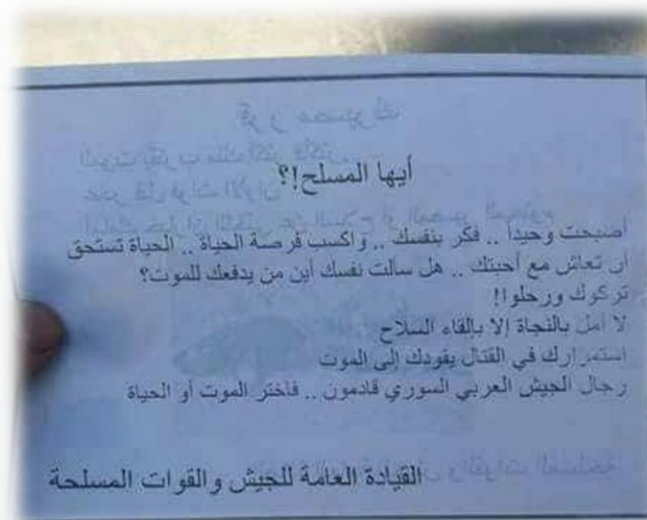 أيها المسلح!؟
أصبحت وحيداً .. فكر بنفسك .. واكسب فرصة الحياة .. الحياة تستحق
أن تعاش مع أحبتك .. هل سالت نفسك أين من يدفعك للموت؟
تركوك ورحلوا!
لا امل بالنجاة إلا بإلقاء السلاح
استمرارك في القتال يقودك إلى الموت
رجال الجيش العربي السوري قادمون .. فاختر الموت أو الحياة
القيادة العامة للجيش والقوات المسلحة